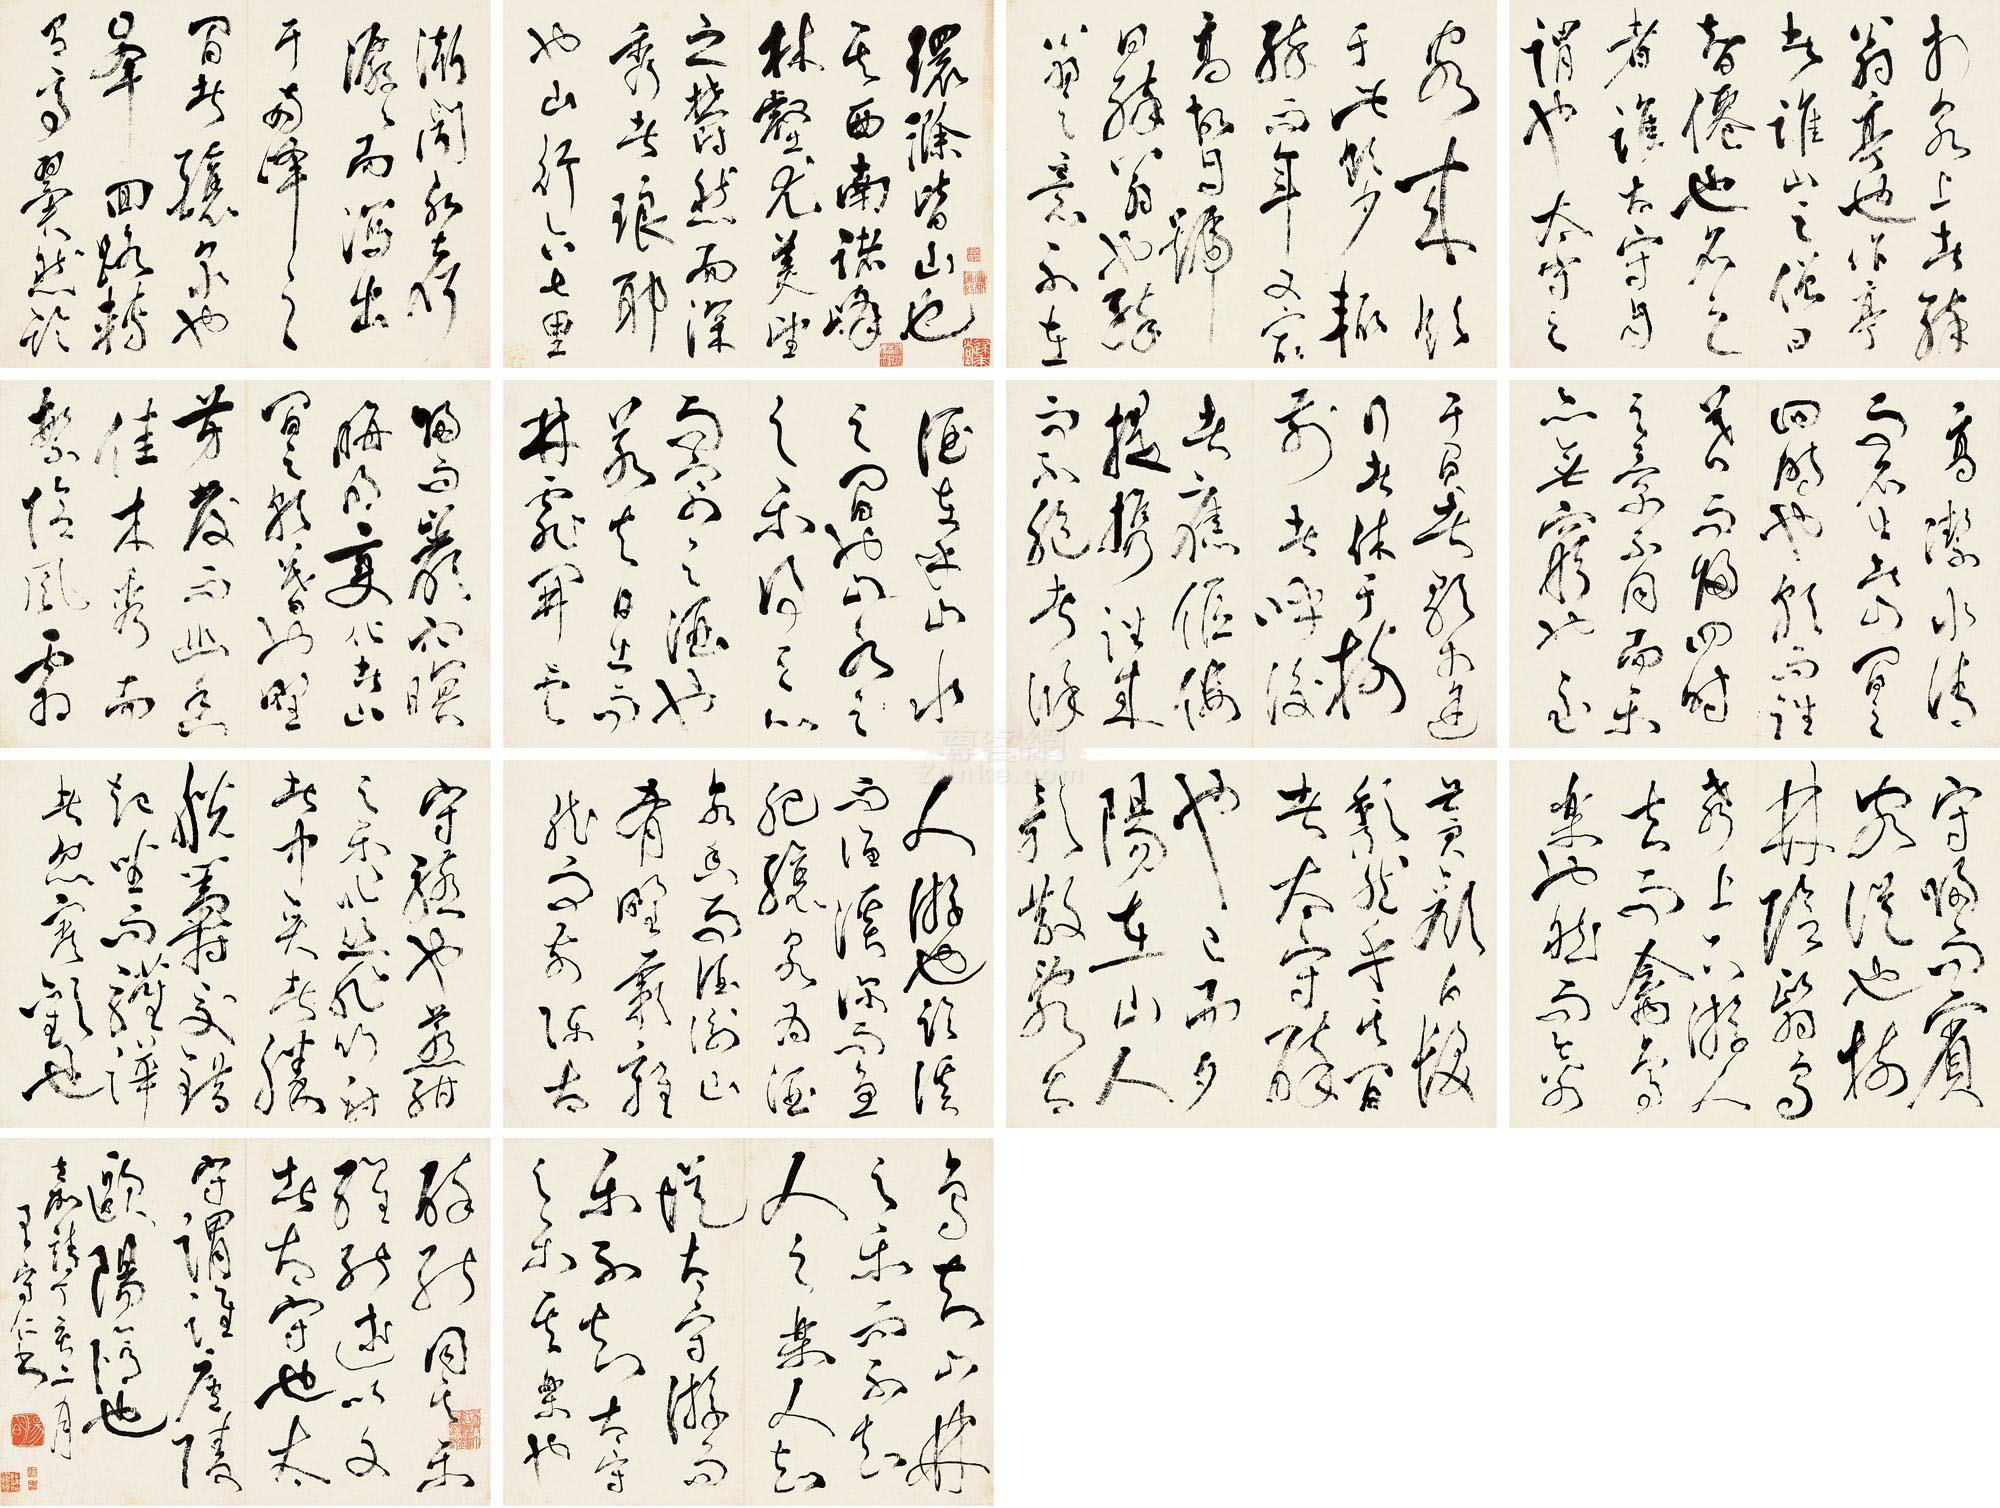 環滁皆山也
其西南諸峰
林壑尤美望
之蔚然而深
秀者琅耶
也山行六七里
漸聞水聲
潺潺而瀉出
于兩峰之
間者釀泉也
峰回路轉
有亭翼然臨
於泉上者醉
翁亭也作亭
者誰山之僧曰
智僊也名之
者誰太守自
謂也太守與
客來飲
于此飲少輒
醉而年又最
高故自號
曰醉翁也醉
翁之意不在
酒在乎山水
之間也山水之
之樂得之心
而寓之酒也
若夫日出而
林霏開雲
歸而巖穴暝
晦明變化者山
間之朝暮也野
芳發而幽香
佳木秀而
繁陰風霜
高潔水清
而石出者山間之
四時也朝而往
暮而歸四時
之景不同而樂
亦無窮也至
于負者歌于途
行者休于樹
前者呼後
者應傴僂
提攜往來
而不絕者滁
人游也臨溪
而漁溪深而魚
肥釀泉為酒
泉香而酒洌山
肴野蔌雜
然而前陳太
守醼也宴酣
之樂非絲非竹射
者中弈者勝
觥籌交錯
起坐而諠譁
者衆賓歡也
蒼顏白髮
頹然乎其間
者太守醉
也已而夕
陽在山人
影散亂太
守歸而賓
客從也樹
林陰翳鳴
聲上下游人
去而禽鳥
樂也然而禽
鳥知山林
之樂而不知
人之樂人知
從太守游而
樂不知太守
之樂其樂也
醉能同其樂
醒能述以文
者太守也太
守謂誰廬陵
歐陽脩也
嘉靖丁亥二月
王守仁書
尊客網